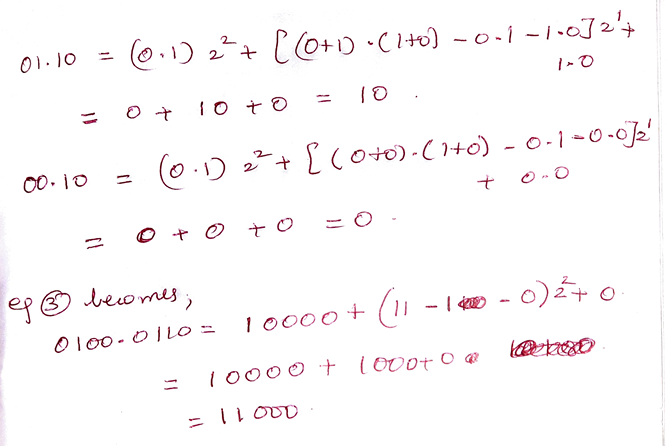 01.10 = (0.1) 2² + [(0+1).(1+0) - 0.1 - 1.0] 2¹ +
1.0
= 0 + 10 + 0 = 10 .
00.10 = (0.1) 2² + [(0+0).(1+0) - 0.1 - 0.0] 2¹
+ 0.0
= 0 + 0 + 0 = 0 .
eq ③ becomes,
0100.0110 = 10000 + (11 - 1 - 0) 2² + 0
= 10000 + 1000 + 0
= 11000 .